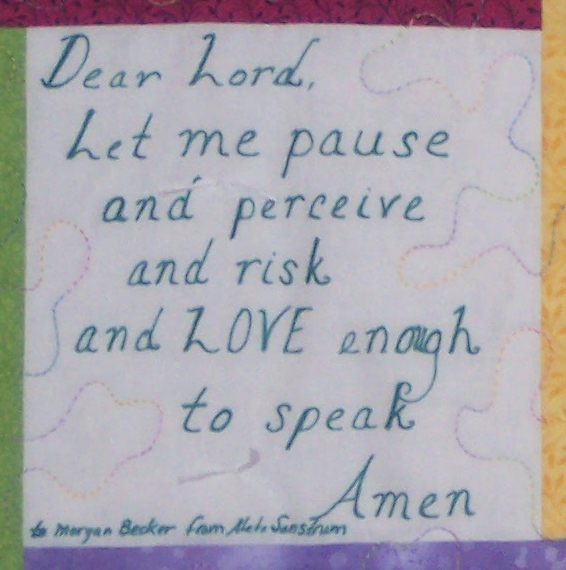 Dear Lord,
Let me pause
and perceive
and risk
and LOVE enough
to speak
Amen
to Morgan Becker from